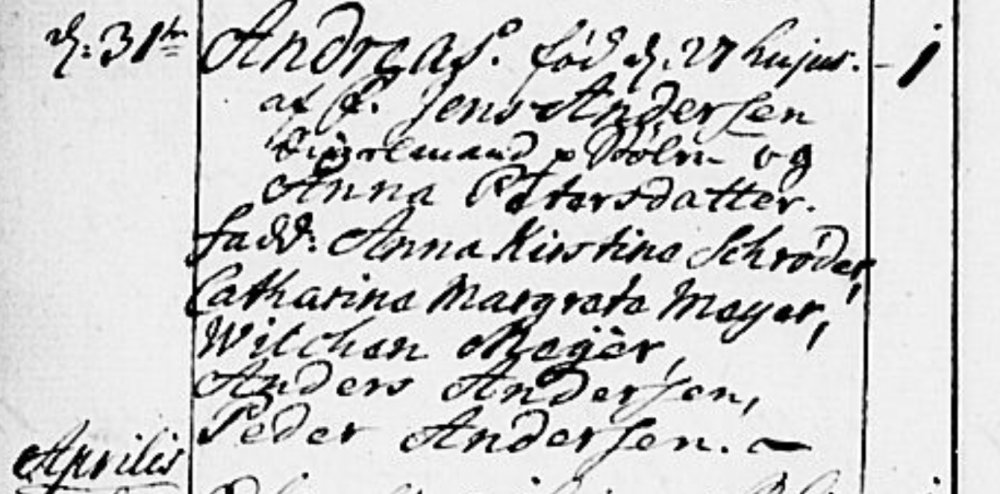 d: 31te Andreas. fød d. 27 hujus. - 1
af F. Jens Andersen
og
Anna Petersdatter.
Fadd: Anna Kirstina Schrøder,
Catharina Margreta Meyer,
Wilchen Meÿer,
Anders Andersen,
Peder Andersen. ~
Aprilis